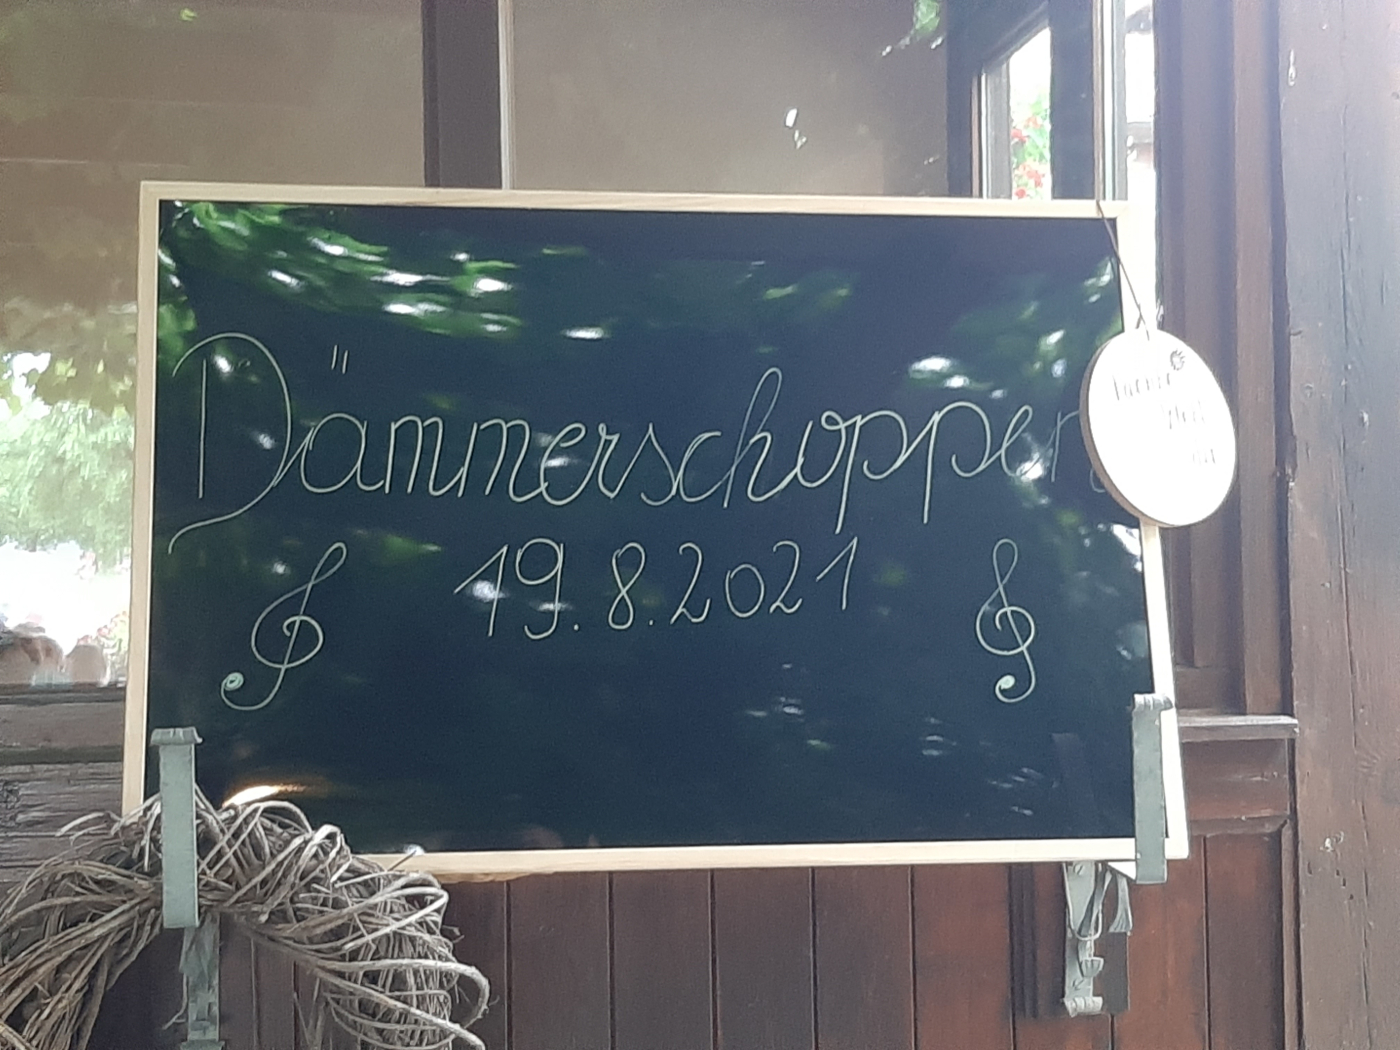 Dämmerschoppen
19.8.2021